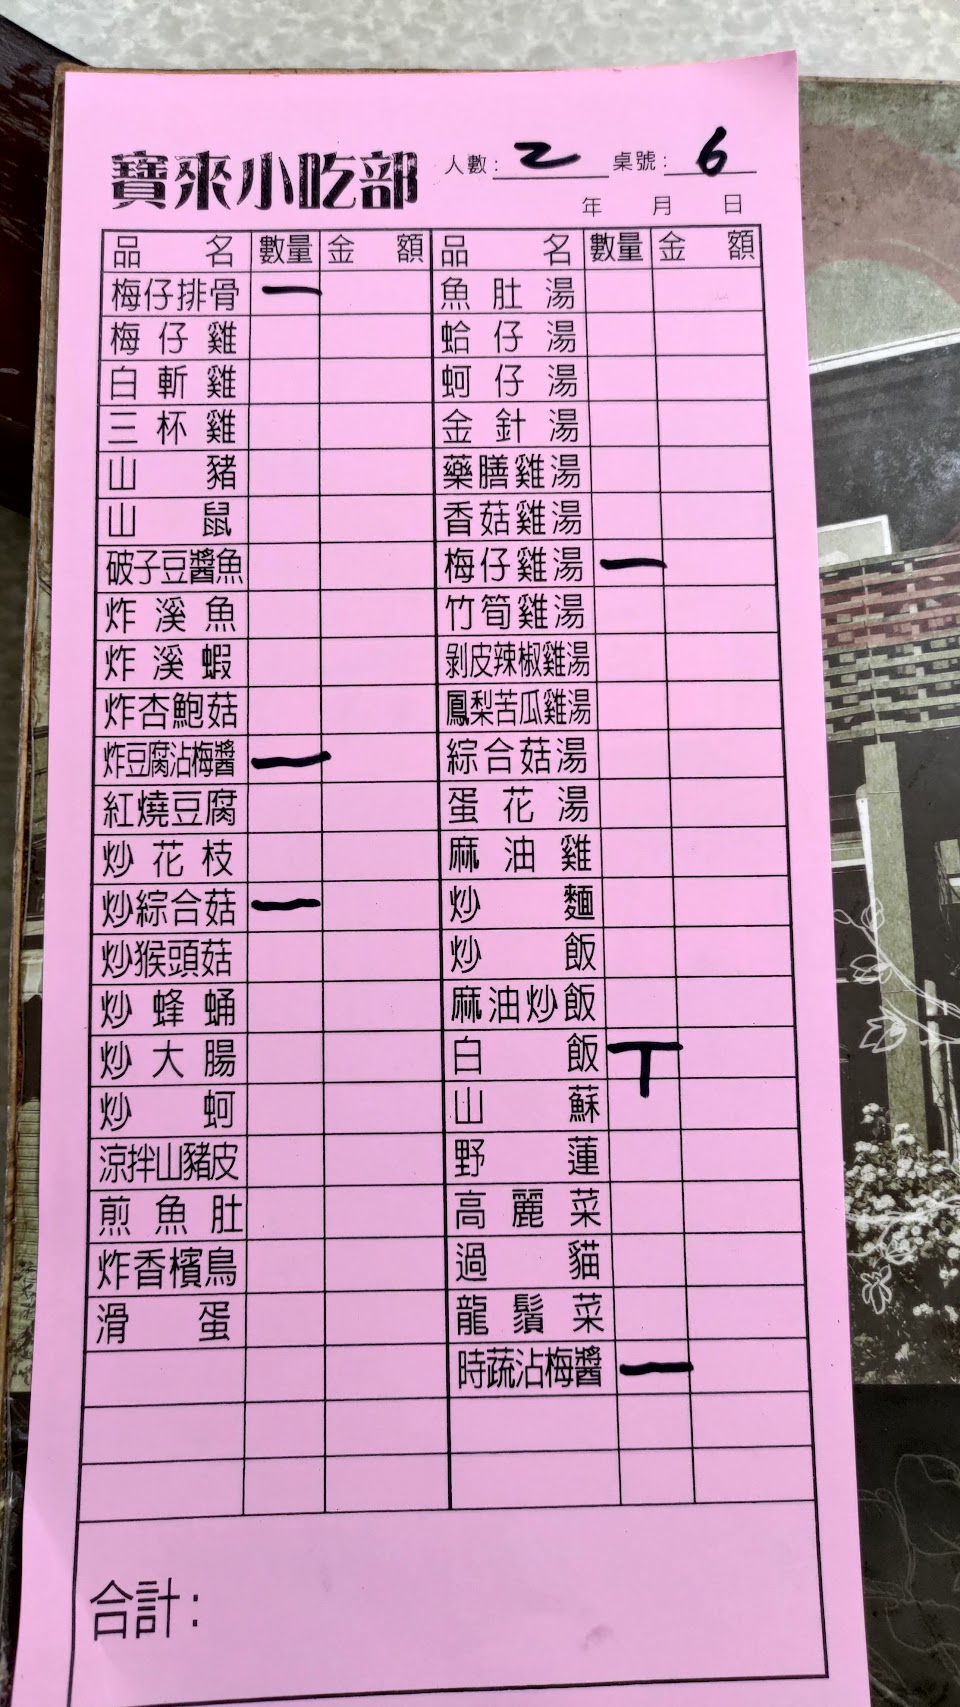 寶來小吃部 人數：2 桌號：6
年 月 日
品名 數量 金額 品名 數量 金額
梅仔排骨 一 魚肚湯
梅仔雞 蛤仔湯
白斬雞 蚵仔湯
三杯雞 金針湯
山豬 藥膳雞湯
山鼠 香菇雞湯
破子豆醬魚 梅仔雞湯 一
炸溪魚 竹筍雞湯
炸溪蝦 剝皮辣椒雞湯
炸杏鮑菇 鳳梨苦瓜雞湯
炸豆腐沾梅醬 一 綜合菇湯
紅燒豆腐 蛋花湯
炒花枝 麻油雞
炒綜合菇 一 炒麵
炒猴頭菇 炒飯
炒蜂蛹 麻油炒飯
炒大腸 白飯 丅
炒蚵 山蘇
涼拌山豬皮 野蓮
煎魚肚 高麗菜
炸香檳鳥 過貓
滑蛋 龍鬚菜
時蔬沾梅醬 一
合計：